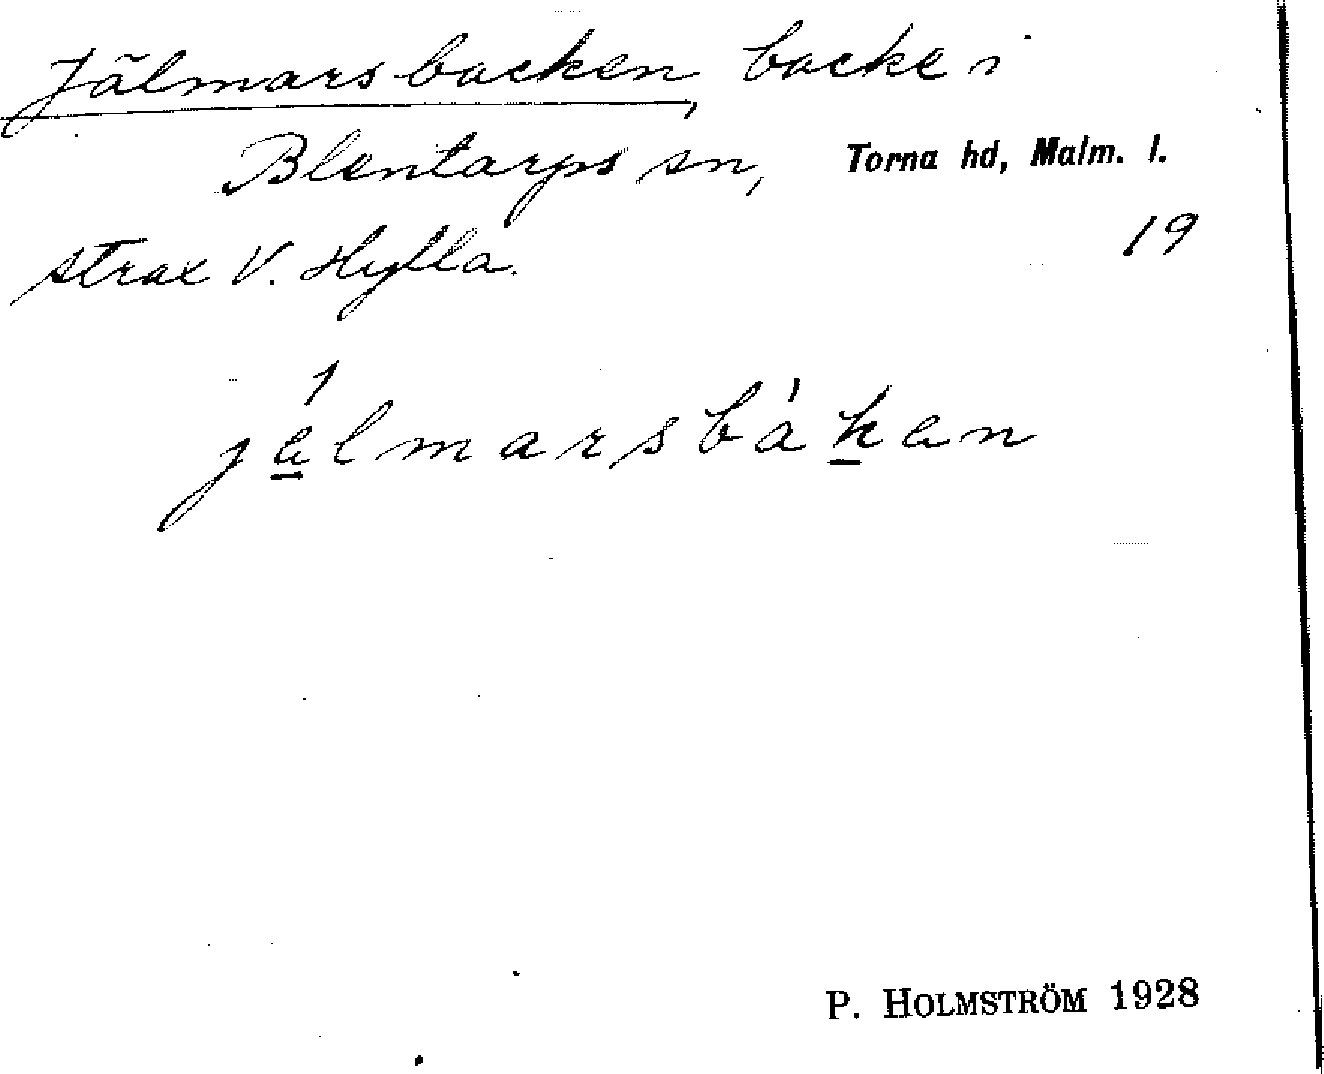 Jälmarsbacken, backe i
Blentarps sn, Torna hd, Malm. l.
strax V. Hylla. 19
jälmarsbákan
P. HOLMSTRÖM 1928